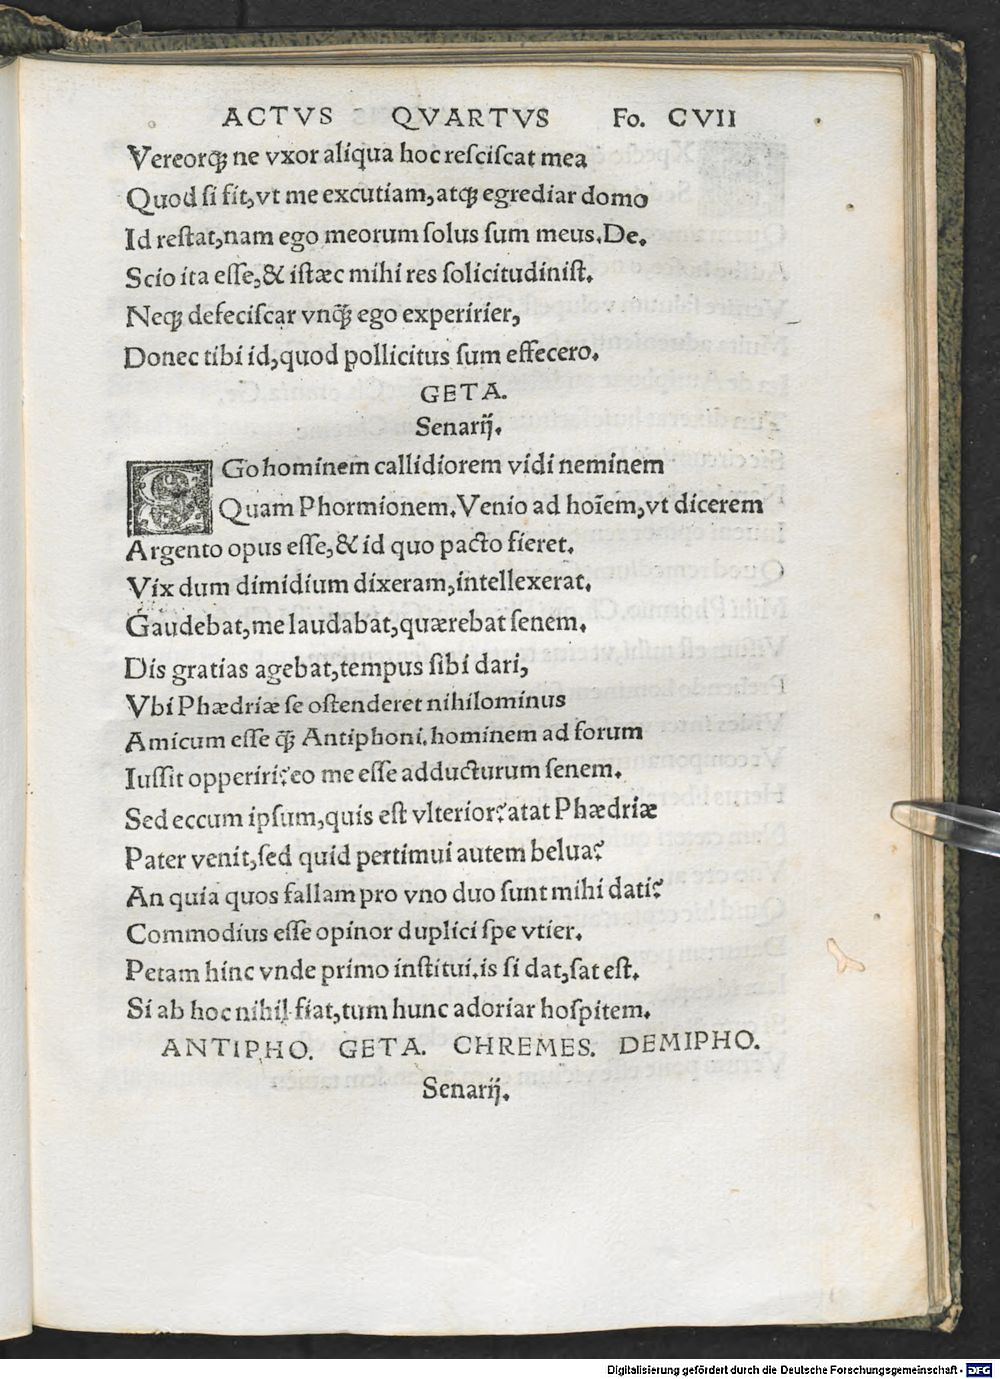 ACTVS QVARTVS Fo. CVII
Vereorqꝫ ne vxor aliqua hoc reſciſcat mea
Quod ſi fit, vt me excutiam, atqꝫ egrediar domo
Id reſtat, nam ego meorum ſolus ſum meus. De.
Scio ita eſſe, & iſtæc mihi res ſolicitudiniſt.
Neqꝫ defeciſcar vnq̃ꝫ ego experirier,
Donec tibi id, quod pollicitus ſum effecero.
GETA.
Senarij.
EGo hominem callidiorem vidi neminem
Quam Phormionem. Venio ad hoīem, vt dicerem
Argento opus eſſe, & id quo pacto fieret.
Vix dum dimidium dixeram, intellexerat.
Gaudebat, me laudabat, quærebat ſenem.
Dis gratias agebat, tempus ſibi dari,
Vbi Phædriæ ſe oſtenderet nihilominus
Amicum eſſe q̃ꝫ Antiphoni. hominem ad forum
Iuſſit opperiri? eo me eſſe adducturum ſenem.
Sed eccum ipſum, quis eſt vlterior? atat Phædriæ
Pater venit, ſed quid pertimui autem belua?
An quia quos fallam pro vno duo ſunt mihi dati?
Commodius eſſe opinor duplici ſpe vtier.
Petam hinc vnde primo inſtitui. is ſi dat, ſat eſt.
Si ab hoc nihil fiat, tum hunc adoriar hoſpitem.
ANTIPHO. GETA. CHREMES. DEMIPHO.
Senarij.
Digitalisierung gefördert durch die Deutsche Forschungsgemeinschaft - DFG